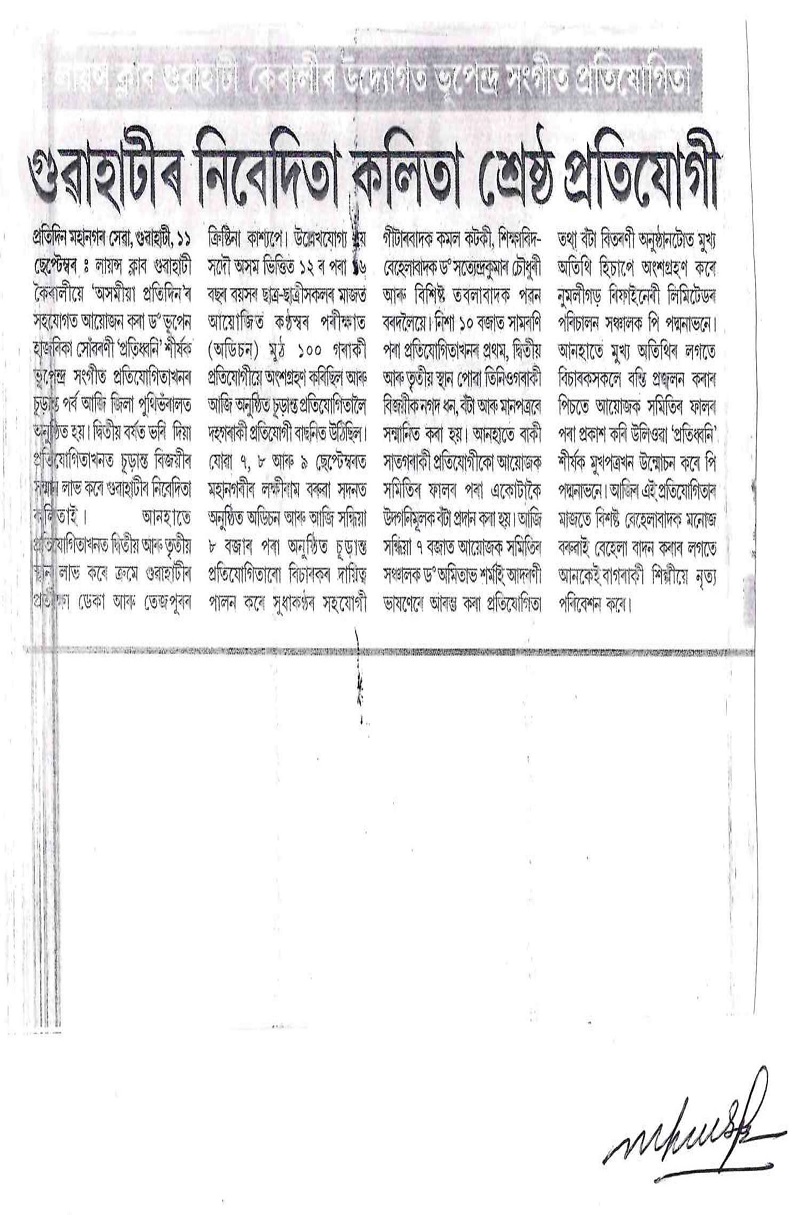 লায়ন্স ক্লাব গুৱাহাটী কৈৰালীৰ উদ্যোগত ভূপেন্দ্ৰ সংগীত প্ৰতিযোগিতা
গুৱাহাটীৰ নিবেদিতা কলিতা শ্ৰেষ্ঠ প্ৰতিযোগী
প্ৰতিদিন মহানগৰ সেৱা, গুৱাহাটী, ১১
ছেপ্টেম্বৰ : লায়ন্স ক্লাব গুৱাহাটী
কৈৰালীয়ে 'অসমীয়া প্ৰতিদিন'ৰ
সহযোগত আয়োজন কৰা ড° ভূপেন
হাজৰিকা সোঁৱৰণী 'প্ৰতিধ্বনি' শীৰ্ষক
ভূপেন্দ্ৰ সংগীত প্ৰতিযোগিতাখনৰ
চূড়ান্ত পৰ্ব আজি জিলা পুথিভঁৰালত
অনুষ্ঠিত হয়। দ্বিতীয় বৰ্ষত ভৰি দিয়া
প্ৰতিযোগিতাখনত চূড়ান্ত বিজয়ীৰ
সন্মান লাভ কৰে গুৱাহাটীৰ নিবেদিতা
কলিতাই। আনহাতে
প্ৰতিযোগিতাখনত দ্বিতীয় আৰু তৃতীয়
স্থান লাভ কৰে ক্ৰমে গুৱাহাটীৰ
ডেকা আৰু তেজপুৰৰ
ক্ৰিষ্টিনা কাশ্যপে। উল্লেখযোগ্য যে
সদৌ অসম ভিত্তিত ১২ ৰ পৰা
বছৰ বয়সৰ ছাত্ৰ-ছাত্ৰীসকলৰ মাজত
আয়োজিত কণ্ঠস্বৰ পৰীক্ষাত
(অডিচন) মুঠ ১০০ গৰাকী
প্ৰতিযোগীয়ে অংশগ্ৰহণ কৰিছিল আৰু
আজি অনুষ্ঠিত চূড়ান্ত প্ৰতিযোগিতালৈ
দহগৰাকী প্ৰতিযোগী বাছনিত উঠিছিল।
যোৱা ৭, ৮ আৰু ৯ ছেপ্টেম্বৰত
মহানগৰীৰ লক্ষীৰাম বৰুৱা সদনত
অনুষ্ঠিত অডিচন আৰু আজি সন্ধিয়া
৮ বজাৰ পৰা অনুষ্ঠিত চূড়ান্ত
প্ৰতিযোগিতাৰো বিচাৰকৰ দায়িত্ব
পালন কৰে সুধাকণ্ঠৰ সহযোগী
গীটাৰবাদক কমল কটকী, শিক্ষাবিদ-
বেহেলাবাদক ড° সত্যেন্দ্ৰকুমাৰ চৌধুৰী
আৰু বিশিষ্ট তবলাবাদক পৱন
বৰদলৈয়ে। নিশা ১০ বজাত সামৰণি
পৰা প্ৰতিযোগিতাখনৰ প্ৰথম, দ্বিতীয়
আৰু তৃতীয় স্থান পোৱা তিনিওগৰাকী
বিজয়ীক নগদ ধন, বঁটা আৰু মানপত্ৰৰে
সন্মানিত কৰা হয়। আনহাতে বাকী
সাতগৰাকী প্ৰতিযোগীকো আয়োজক
সমিতিৰ ফালৰ পৰা একোটাকৈ
উদগনিমূলক বঁটা প্ৰদান কৰা হয়। আজি
সন্ধিয়া ৭ বজাত আয়োজক সমিতিৰ
সঞ্চালক ড° অমিতাভ শৰ্মাই আদৰণী
ভাষণেৰে আৰম্ভ কৰা প্ৰতিযোগিতা
তথা বঁটা বিতৰণী অনুষ্ঠানটোত মুখ্য
অতিথি হিচাপে অংশগ্ৰহণ কৰে
নুমলীগড় ৰিফাইনেৰী লিমিটেডৰ
পৰিচালন সঞ্চালক পি পদ্মনাভনে।
আনহাতে মুখ্য অতিথিৰ লগতে
বিচাৰকসকলে বন্তি প্ৰজ্বলন কৰাৰ
পিচতে আয়োজক সমিতিৰ ফালৰ
পৰা প্ৰকাশ কৰি উলিওৱা 'প্ৰতিধ্বনি'
শীৰ্ষক মুখপত্ৰখন উন্মোচন কৰে পি
পদ্মনাভনে। আজিৰ এই প্ৰতিযোগিতাৰ
মাজতে বিশষ্ট বেহেলাবাদক মনোজ
বৰুৱাই বেহেলা বাদন কৰাৰ লগতে
আনকেইবাগৰাকী শিল্পীয়ে নৃত্য
পৰিবেশন কৰে।